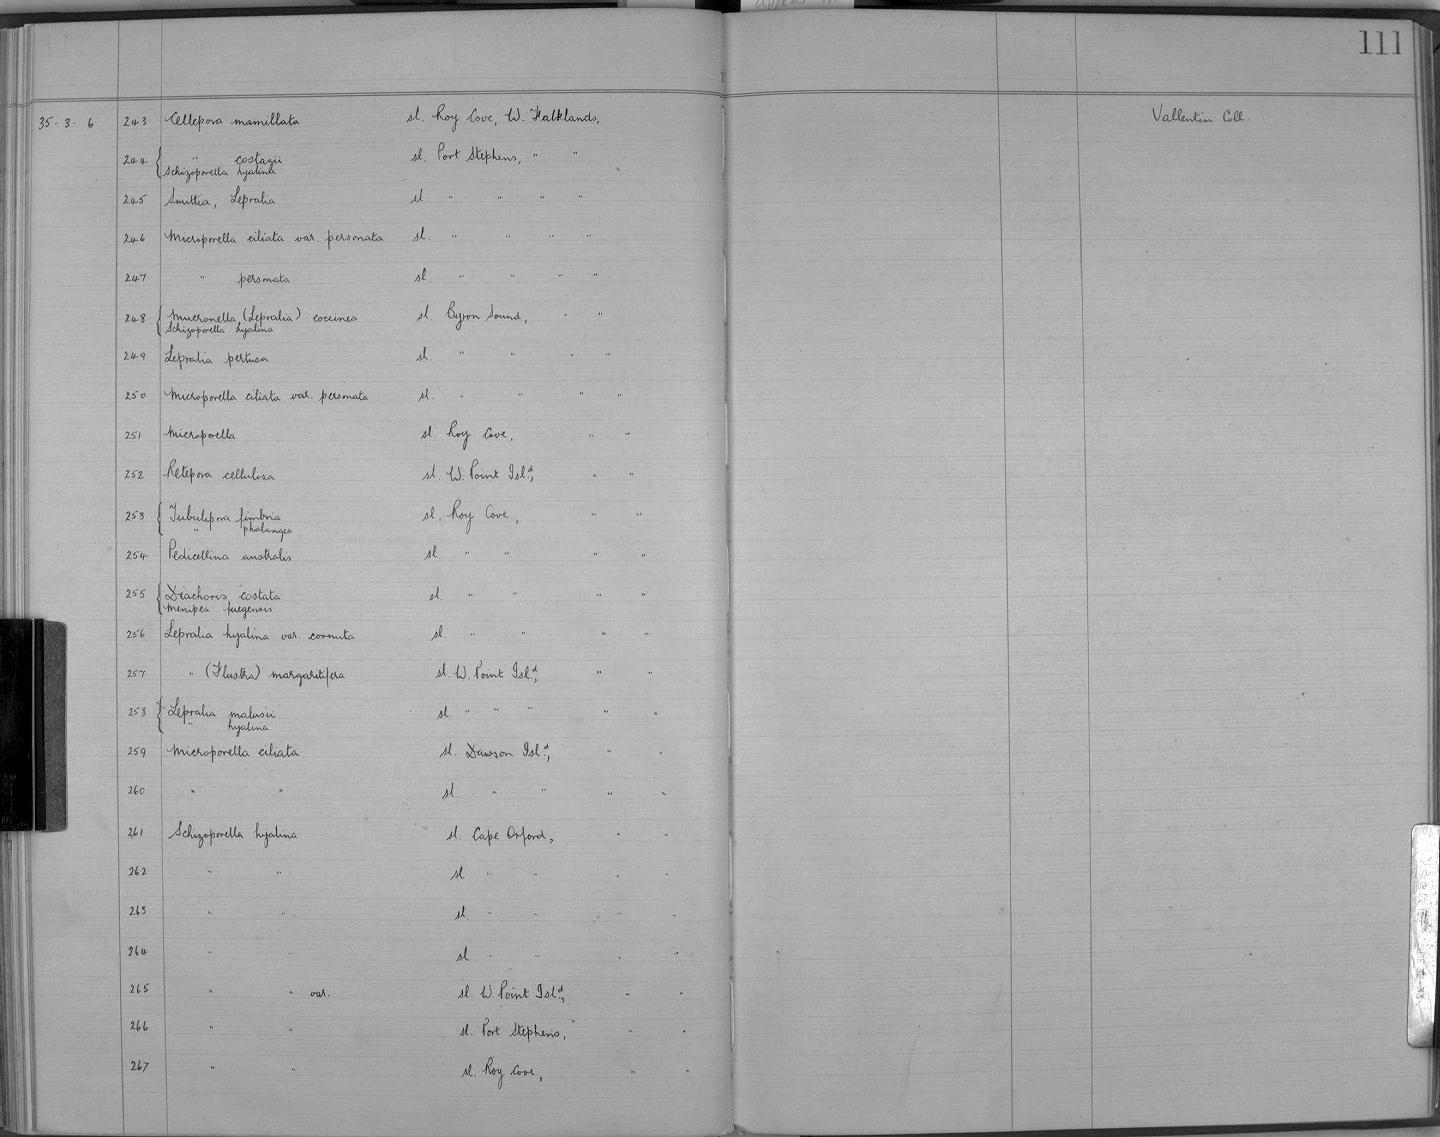 111
35. 3. 6 243 Cellepora mamillata sl. Roy Cove, W. Falklands, Vallentin Coll.
244 { " costazii sl. Port Stephens, " "
Schizoporella hyalina
245 Smittia, Lepralia sl " " " "
246 Microporella ciliata var. personata sl. " " " "
247 " personata sl. " " " "
248 { Mucronella (Lepralia) coccinea sl. Byron Sound, " "
Schizoporella hyalina
249 Lepralia pertusa sl. " " " "
250 Microporella ciliata var. personata sl. " " " "
251 Microporella sl. Roy Cove, " "
252 Retepora cellulosa sl. W. Point Isld, " "
253 { Tubulipora fimbria sl. Roy Cove, " "
" phalangea
254 Pedicellina australis sl. " " " "
255 { Diachoris costata sl. " " " "
Menipea fuegensis
256 Lepralia hyalina var. cornuta sl. " " " "
257 " (Flustra) margaritifera sl. W. Point Isld, " "
258 { Lepralia malusii sl. " " " " "
" hyalina
259 Microporella ciliata sl. Dawson Isld, " "
260 " " sl. " " " "
261 Schizoporella hyalina sl. Cape Orford, " "
262 " " sl " " " "
263 " " sl " " " "
264 " " sl " " " "
265 " " var. sl. W. Point Isld, " "
266 " " sl. Port Stephens, " "
267 " " sl. Roy Cove, " "